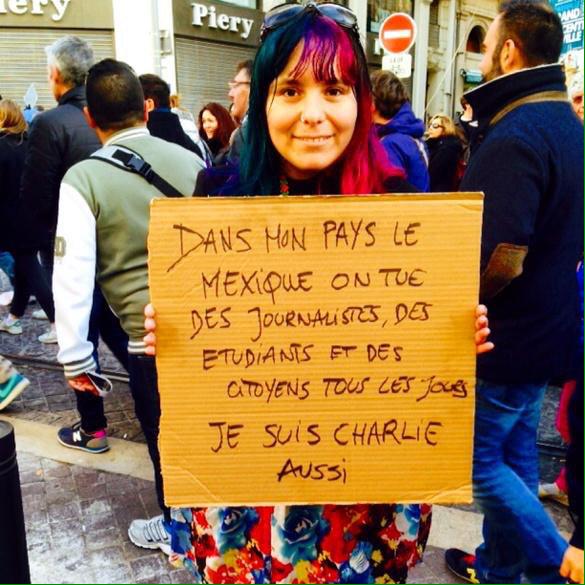 Piery
Piery
DANS MON PAYS LE
MEXIQUE ON TUE
DES JOURNALISTES, DES
ETUDIANTS ET DES
CITOYENS TOUS LES JOURS
JE SUIS CHARLIE
AUSSI